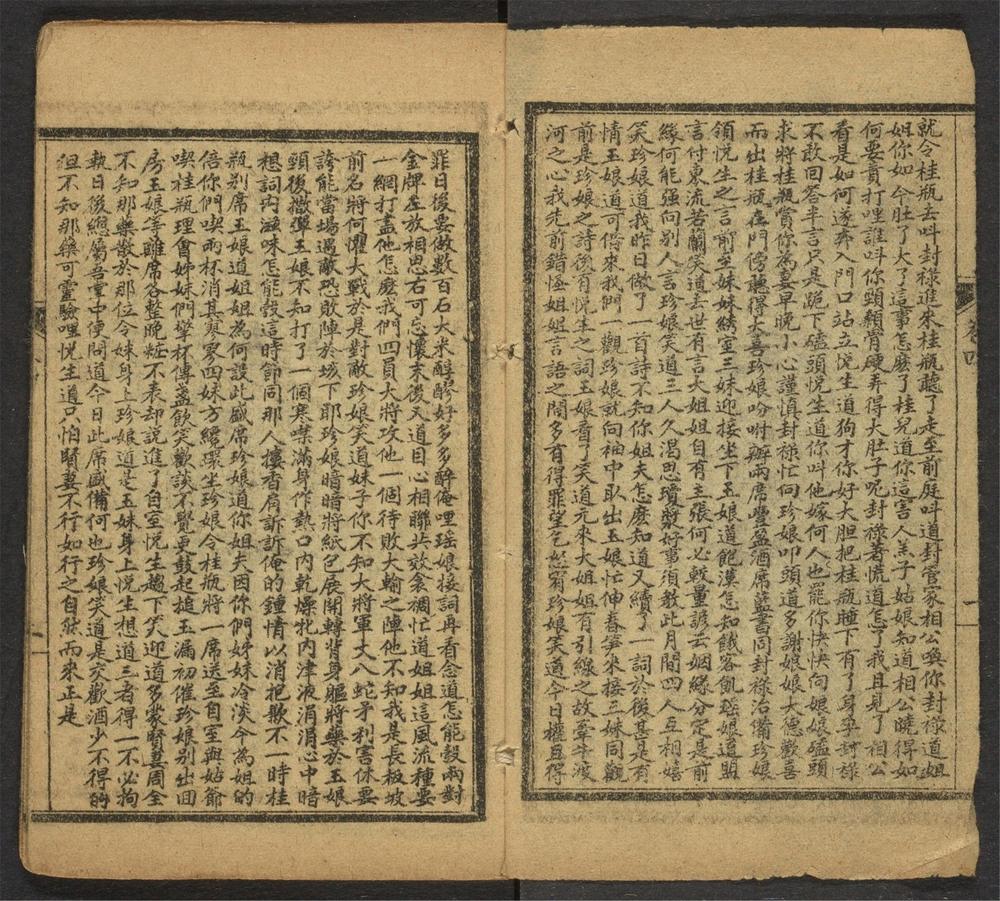 就令桂瓶去呌封禄進來桂瓶聽了走至前庭呌道封管家相公喚你封禄道姐
姐你如今肚了大了這事怎麽了桂兒道你這害人羔子姑娘知道相公曉得如
何要責打哩誰呌你頸頼骨硬弄得大肚子呢封禄著慌道怎了我且見了相公
看是如何遂奔入門口站立悅生道狗才你好大胆把桂瓶睡下有了身孕封禄
不敢回答半言只是跪下磕頭悅生道你叫他嫁何人也罷你快快向娘娘磕頭
求將桂瓶賞你為妻早晚小心謹慎封禄忙向珍娘叩頭道多謝娘娘大德歡喜
而出桂瓶在門傍聽得大喜珍娘吩咐辦兩席豐盛酒席藍書同封禄治備珍娘
領悅生之言前至妹妹綉室三妹迎接坐下玉娘道飽漢怎知餓客飢瑶娘道盟
言付東流苦蘭笑道去世有言大姐自有主張何必較量諺云姻緣分定是前
緣何能强向别人言珍娘笑道三人久渴思瓊漿好事須教此月間四人互相嬉
笑珍娘道我昨日做了一首詩不知你姐夫怎麽知道又續了一詞於後甚是有
情玉娘道可借來我們一觀珍娘就向袖中取出玉娘忙伸春笋來接三妹同觀
前是珍娘之詩後有悅生之詞玉娘看了笑道元來大姐姐有引線之故牽牛渡
河之心我先前錯怪姐姐言語之間多有得罪望乞恕宥珍娘笑道今日權且得
卷四
一
罪日後要做數百石大米醇醪好多多醉俺哩瑶娘接詞再看念道怎能彀兩對
金牌左放相思右可忘懷末後又道目心相聯共效衾裯忙道姐姐這風流種要
一網打盡他怎麽我們四員大將攻他一個待敗大輸之陣他不知我是長板坡
前名將何懼大戰於是對敵珍娘笑道妹子你不知大將軍丈八蛇矛利害休要
誇能當塲遇敵恐敢陣於垓下耶珍娘暗暗將紙包展開轉背身軀將藥於玉娘
頸後撒彈玉娘不知打了一個寒噤滿身作熱口内乾燥牝内津液涓涓心中暗
想詞内滋味怎能彀這時節同那人摟香肩訴訴俺的鍾情以消把歎不一時桂
瓶别席玉娘道姐姐為何設此盛席珍娘道你姐夫因你們姊妹冷淡今為姐的
倍你們喫兩杯消其寂寥四妹方纔環坐珍娘令桂瓶將一席送至自室與姑爺
喫桂瓶理會姊妹們擎杯傳盞飲笑歡談不覺更鼓起搥玉漏初催珍娘别出回
房玉娘等離席各整晚粧不表却說進了自室悅生趨下笑迎道多蒙賢妻周全
不知那藥散於那位令妹身上珍娘道是玉妹身上悅生想道三者得一不必拘
執日後總屬吾量中便問道今日此席盛備何也珍娘笑道是交歡酒少不得的
但不知那藥可靈驗哩悅生道只怕賢妻不行如行之自然而來正是